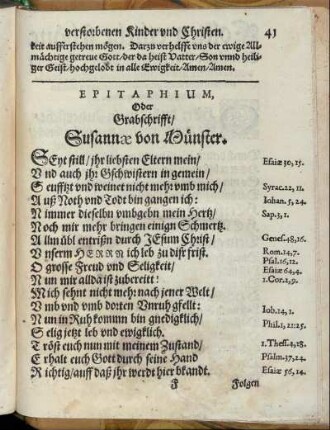 verstorbenen Kinder vnd Christen. 41
keit aufferstehen mögen. Darzu verhelffe vns der ewige All-
mächtige getreue Gott/ der da heist Vatter/ Son vnnd heili-
ger Geist/ hochgelobt in alle Ewigkeit/ Amen/ Amen.
EPITAPHIUM,
Oder
Grabschrifft/
Susannæ von Münster.
SEyt still/ jhr liebsten Eltern mein/ Esaiæ 30, 15.
Vnd auch jhr Gschwistern in gemein/
Seufftzt vnd weinet nicht mehr vmb mich/ Syrac. 22, 11.
Auß Noth vnd Todt bin gangen ich: Johan. 5, 24.
Nimmer dieselbn vmbgebn mein Hertz/ Sap. 3, 1.
Noch mir mehr bringen einign Schmertz.
Allm übl entrißn durch JEsum Christ/ Genes. 48, 16.
Vnserm HERRN ich leb zu diser frist. Rom. 14, 7.
O grosse Freud vnd Seligkeit/ Psal. 16, 12.
Esaiæ 64, 4.
Nun mir allda ist zubereitt! 1. Cor. 2, 9.
Mich sehnt nicht mehr nach jener Welt/
Vmb vnd vmb dorten Vnruh gfellt: Iob. 14, 1.
Nun in Ruh komm bin gnediglich/ Phil. 1, 21: 25.
Selig jetzt leb vnd ewigklich.
Tröst euch nun mit meinem Zustand/ 1. Thess. 4, 18.
Erhalt euch Gott durch seine Hand Psalm. 37, 24.
Richtig/ auff daß jhr werdt hier bkandt. Esaiæ 56, 14.
F Folgen